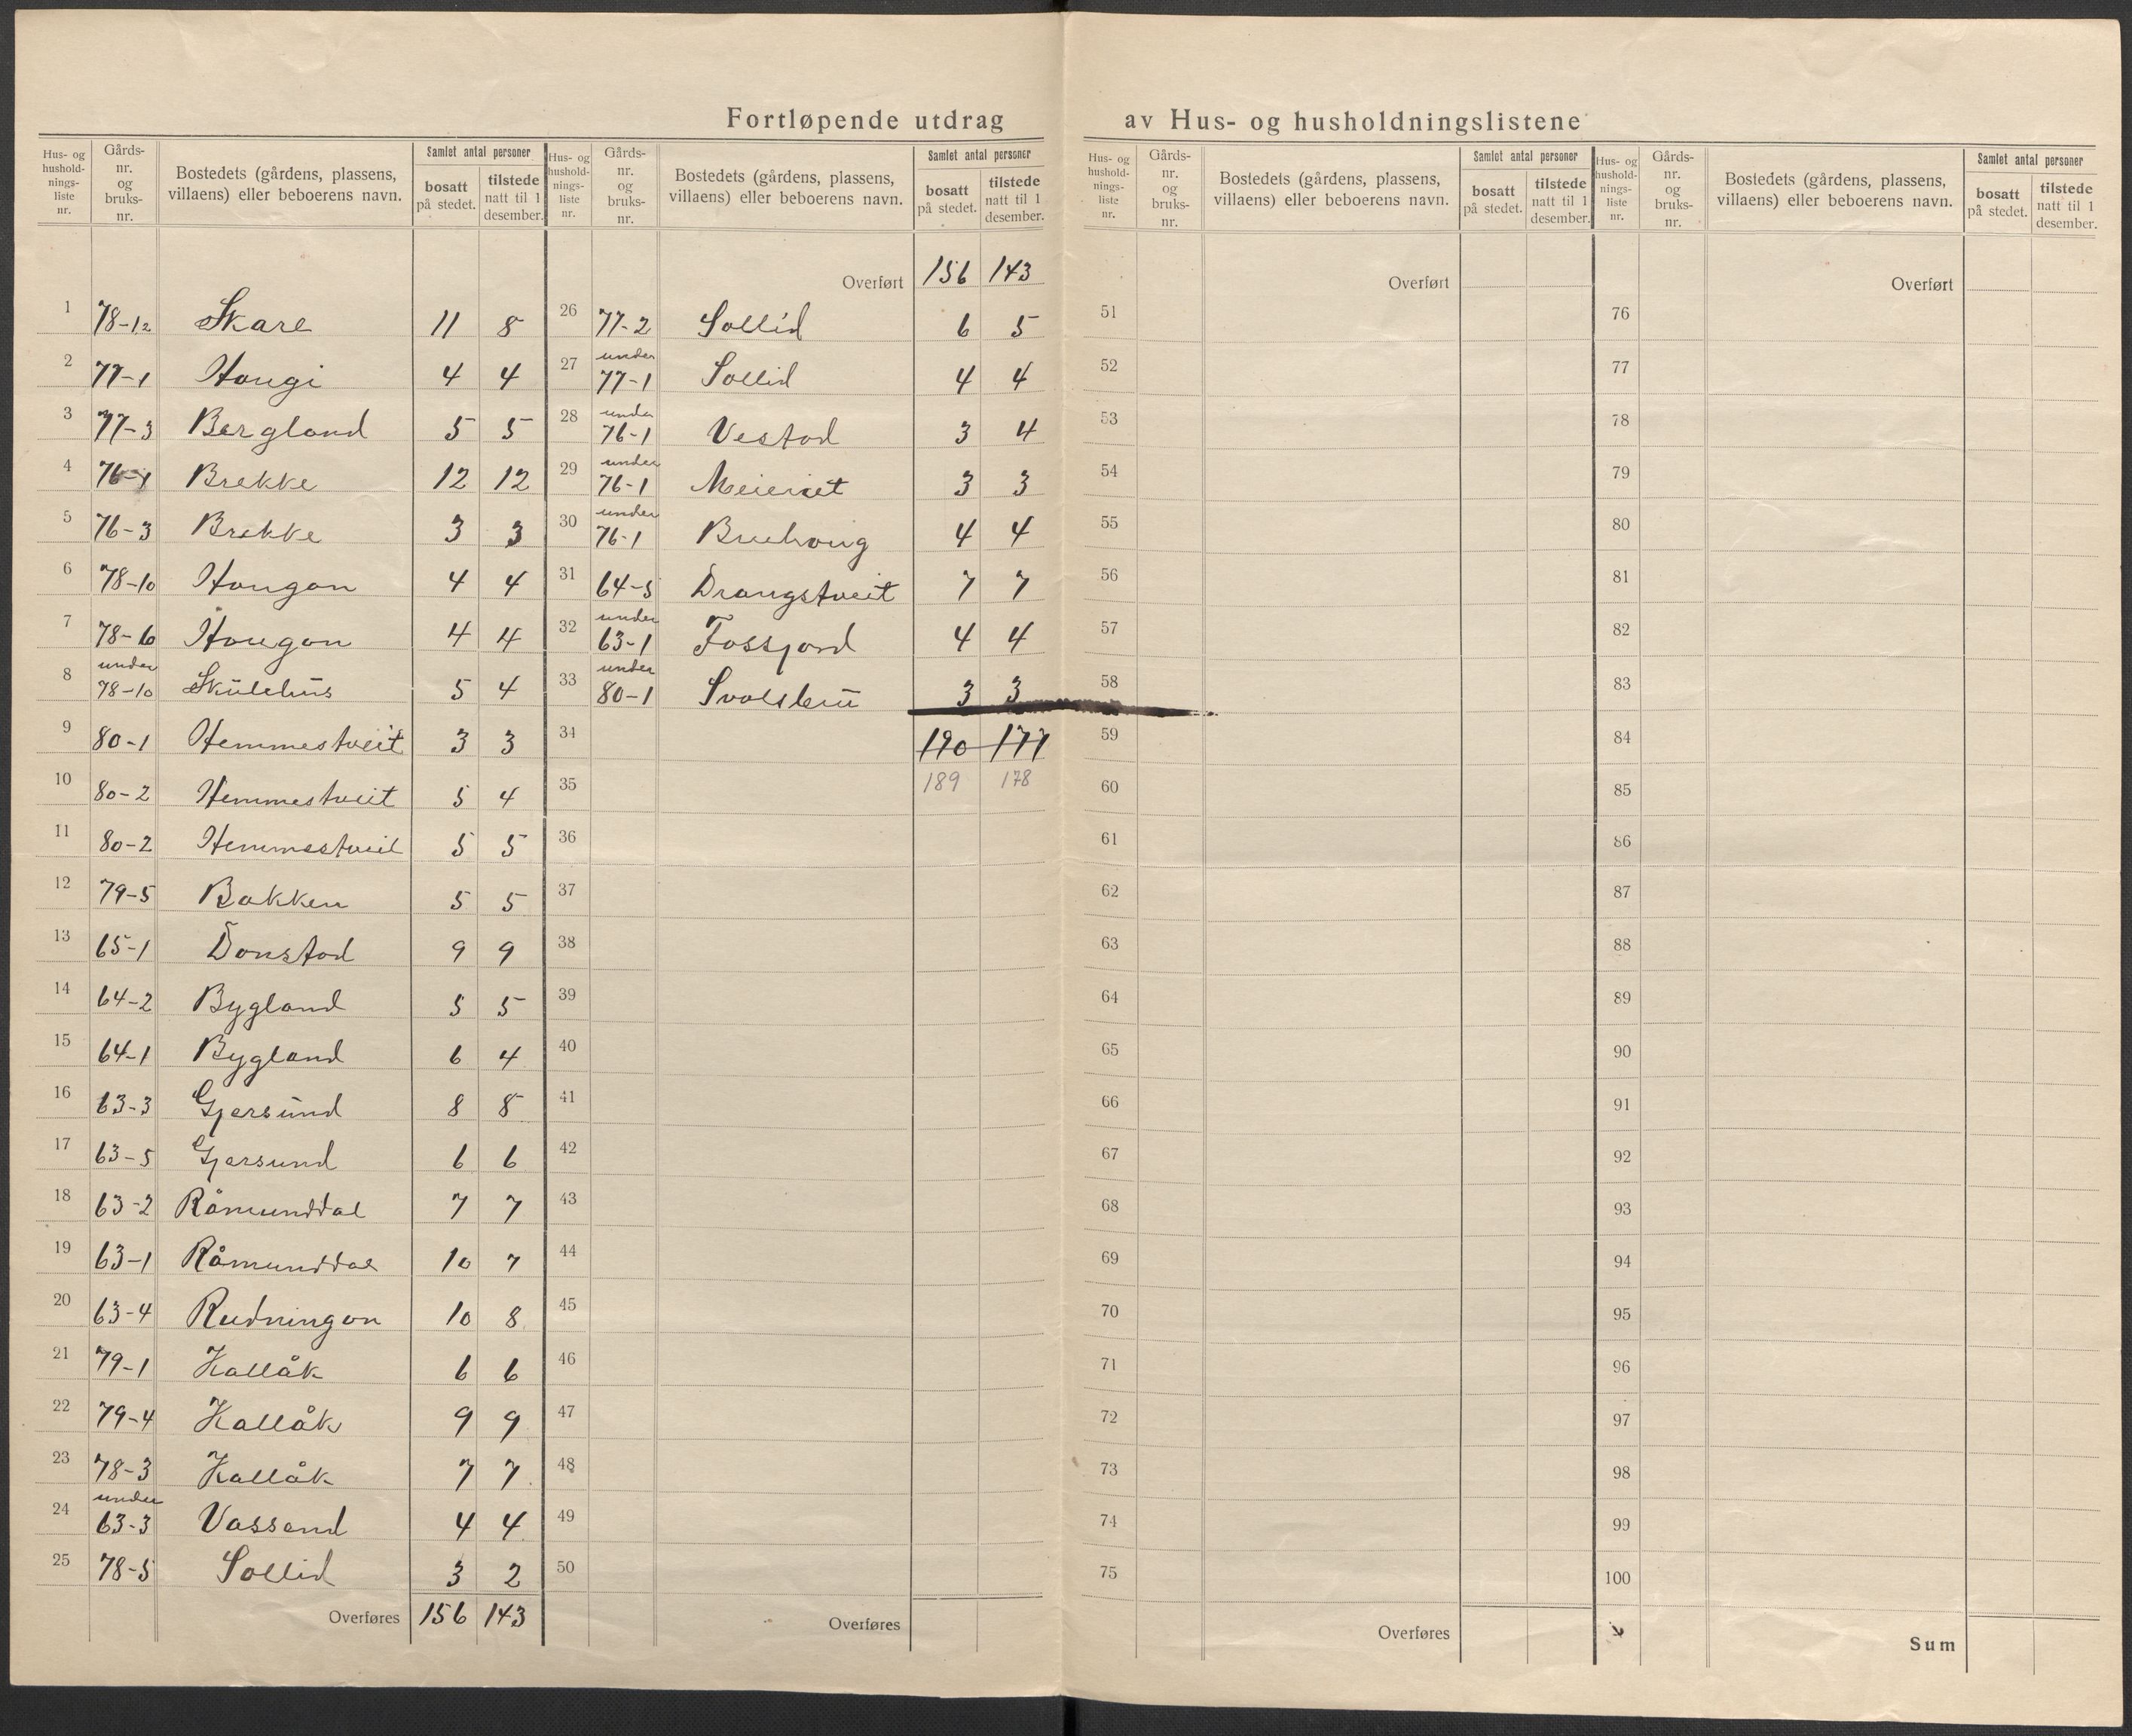 Fortløpende utdrag av Hus- og husholdningslistene
Hus- og hushold-nings-liste nr. | Gårds-nr. og bruks-nr. | Bostedets (gårdens, plassens, villaens) eller beboerens navn. | Samlet antal personer | bosatt på stedet. | tilstede natt til 1 desember.
1 78-12 Skare 11 8
2 77-1 Haugi 4 4
3 77-3 Bergland 5 5
4 76-1 Brekke 12 12
5 76-3 Brekke 3 3
6 78-10 Haugan 4 4
7 78-6 Haugan 4 4
8 under 78-10 Skülehüs 5 4
9 80-1 Hemmestveit 3 3
10 80-2 Hemmestveit 5 4
11 80-2 Hemmestveit 5 5
12 79-5 Bakken 5 5
13 65-1 Dånstad 9 9
14 64-2 Bygland 5 5
15 64-1 Bygland 6 4
16 63-3 Gjersünd 8 8
17 63-5 Gjersund 6 6
18 63-2 Råmunddal 7 7
19 63-1 Råmunddal 10 7
20 63-4 Rudningan 10 8
21 79-1 Kallåk 6 6
22 79-4 Kallåk 9 9
23 78-3 Kallåk 7 7
24 under 63-3 Vassend 4 4
25 78-5 Sollid 3 2
Overføres 156 143
Hus- og hushold-nings-liste nr. | Gårds-nr. og bruks-nr. | Bostedets (gårdens, plassens, villaens) eller beboerens navn. | Samlet antal personer | bosatt på stedet. | tilstede natt til 1 desember.
Overført 156 143
26 77-2 Sollid 6 5
27 under 77-1 Sollid 4 4
28 under 76-1 Vestad 3 4
29 under 76-1 Meieriet 3 3
30 under 76-1 Bruhaug 4 4
31 64-5 Drangstveit 7 7
32 under 63-1 Fossjord 4 4
33 under 80-1 3 3
34 190 177
35 189 178
36
37
38
39
40
41
42
43
44
45
46
47
48
49
50
Overføres
Hus- og hushold-nings-liste nr. | Gårds-nr. og bruks-nr. | Bostedets (gårdens, plassens, villaens) eller beboerens navn. | Samlet antal personer | bosatt på stedet. | tilstede natt til 1 desember.
Overført
51
52
53
54
55
56
57
58
59
60
61
62
63
64
65
66
67
68
69
70
71
72
73
74
75
Overføres
Hus- og hushold-nings-liste nr. | Gårds-nr. og bruks-nr. | Bostedets (gårdens, plassens, villaens) eller beboerens navn. | Samlet antal personer | bosatt på stedet. | tilstede natt til 1 desember.
Overført
76
77
78
79
80
81
82
83
84
85
86
87
88
89
90
91
92
93
94
95
96
97
98
99
100
Sum